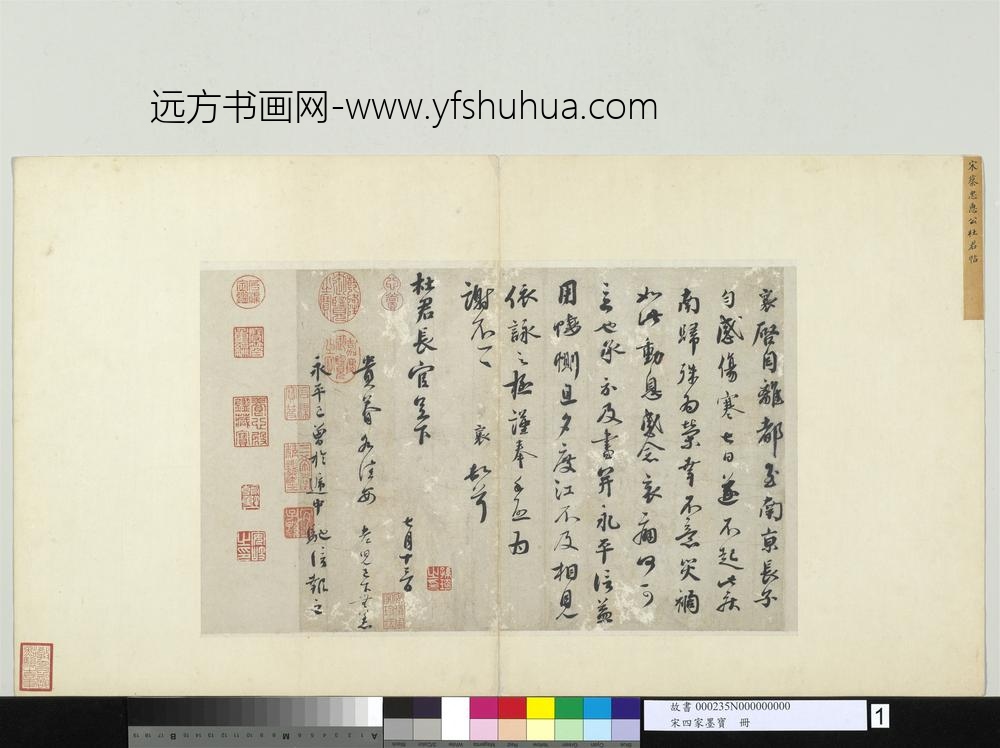 远方书画网-www.yfshuhua.com
宋蔡忠惠公杜君帖
襄啓自離都至南京長子
勻感傷寒七日遂不起此疾
南歸殊為榮幸不意災禍
如此動息感念哀痛何可
言也承示及書并永平信益
用悽惻旦夕度江不及相見
依詠之極謹奉手啓為
謝不一一 襄頓首
杜君長官足下
七月十三日
貴眷各佳安 老兒已下無恙
永平已曾於遞中馳信報之
故書 000235N000000000
宋四家墨寶 冊
1